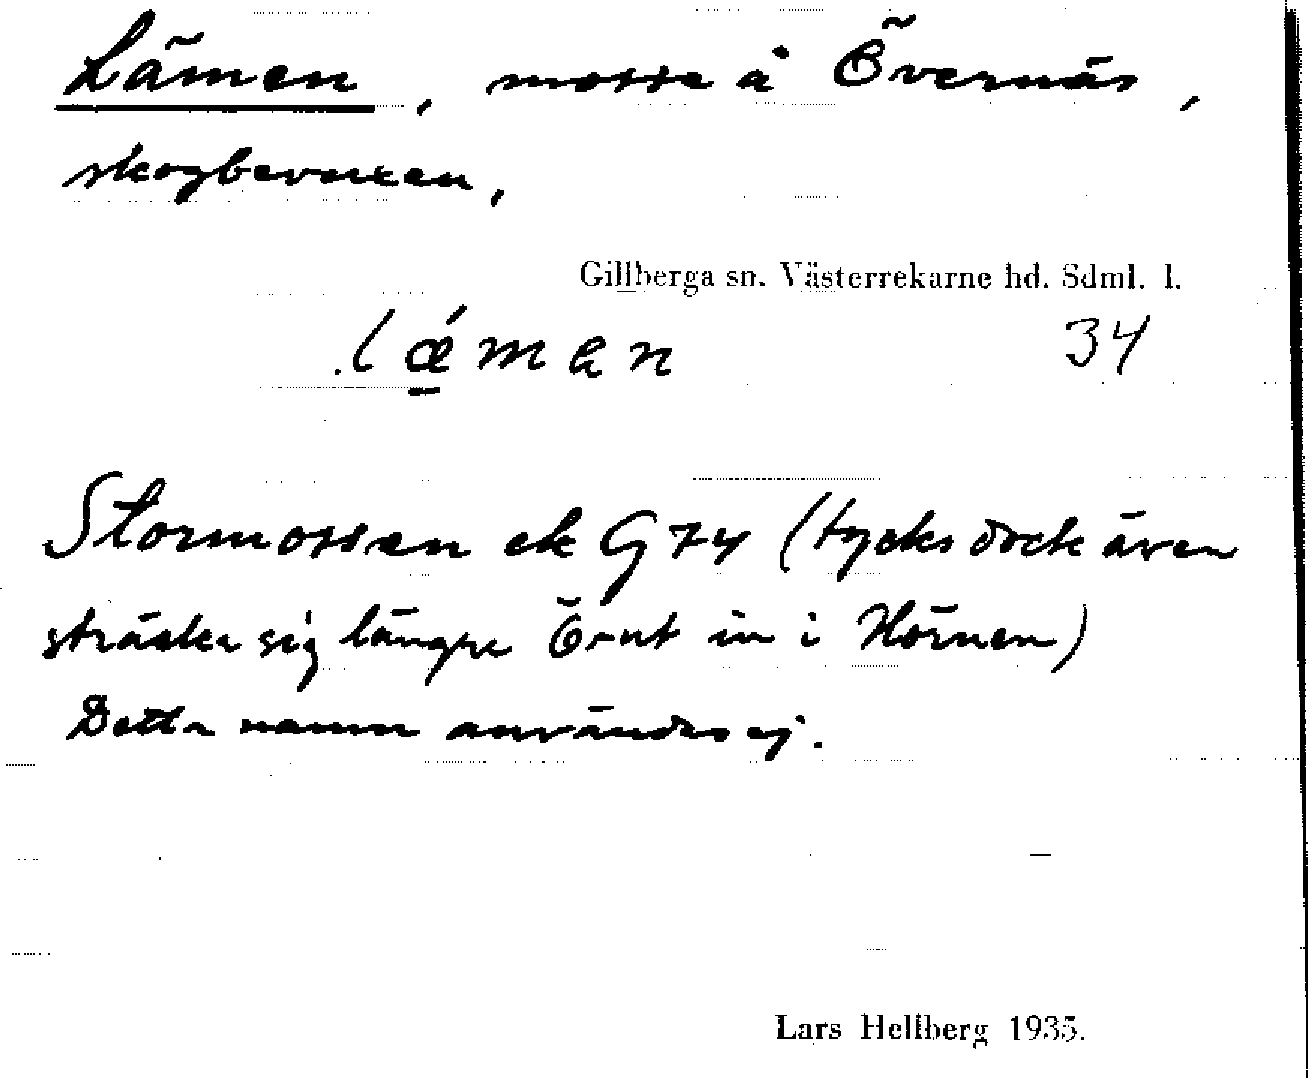 Lämen, mosse å Övernäs,
skogbevuxen,
Gillberga sn. Västerrekarne hd. Sdml. l.
lǽman 34
Stormossen ek G 74 (tycks dock även
sträcka sig längre Ö-ut in i Hörnen)
Detta namn användes ej.
Lars Hellberg 1935.